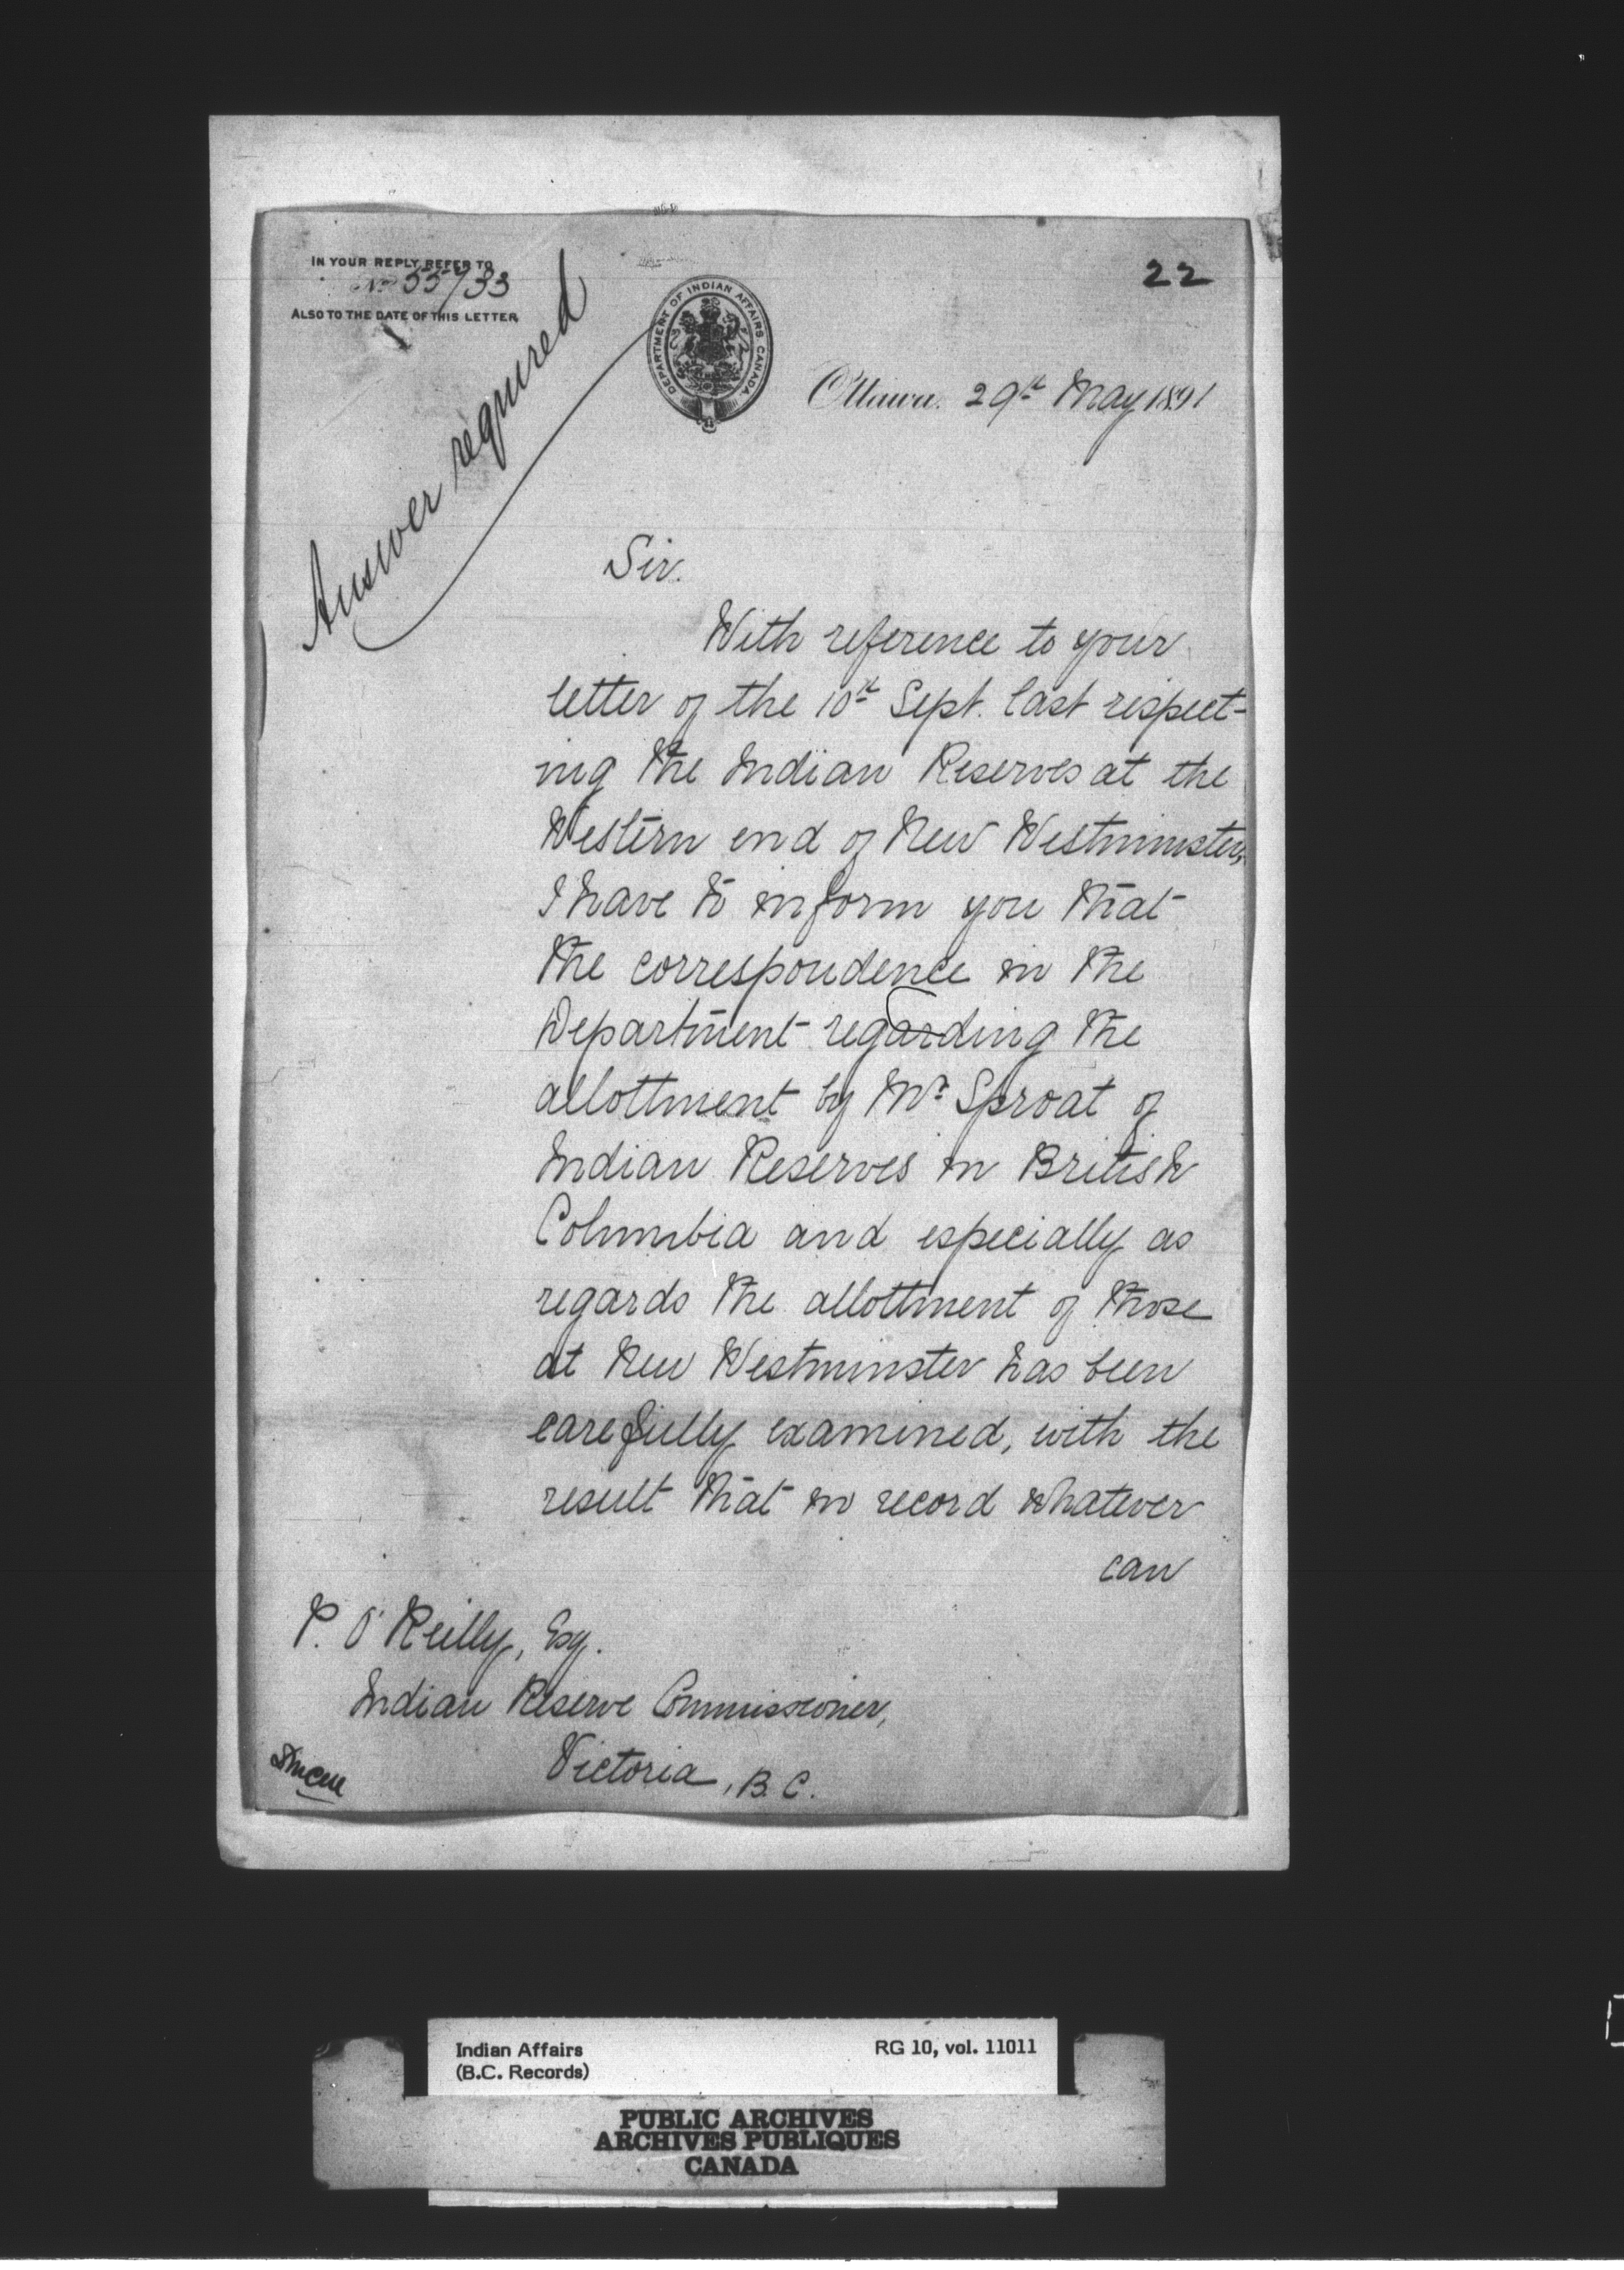 IN YOUR REPLY REFER TO
No 55733
ALSO TO THE DATE OF THIS LETTER
22
DEPARTMENT OF INDIAN AFFAIRS CANADA
Ottawa. 29th May 1891
Answer required
Sir.
With reference to your
letter of the 10th Sept. last respect-
ing the Indian Reserves at the
Western end of New Westminster,
I have to inform you that
the correspondence in the
Department regarding the
allottment by Mr Sproat of
Indian Reserves in British
Columbia and especially as
regards the allottment of those
at New Westminster has been
carefully examined, with the
result that no record whatever
can
P. O'Reilly, Esq.
Indian Reserve Commissioner,
Victoria, B.C.
Indian Affairs
(B.C. Records)
RG 10, vol. 11011
PUBLIC ARCHIVES
ARCHIVES PUBLIQUES
CANADA